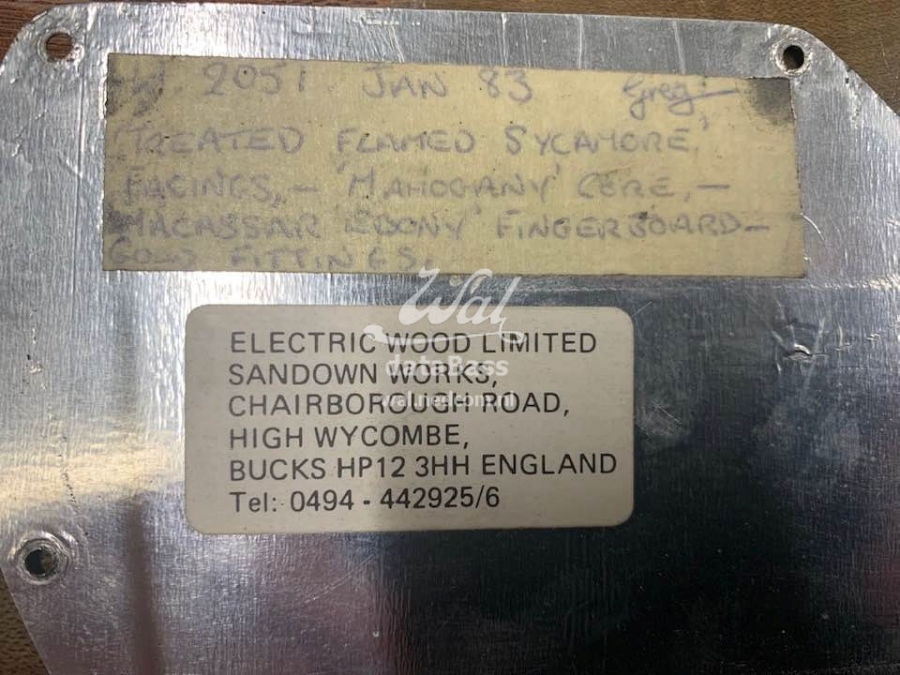 W. 2051 JAN 83 Greg
'TREATED FLAMED SYCAMORE'
FACINGS, — 'MAHOGANY' CORE, —
'MACASSAR EBONY' FINGERBOARD —
GOLD FITTINGS.
Wal
dataBass
ELECTRIC WOOD LIMITED
SANDOWN WORKS,
CHAIRBOROUGH ROAD,
HIGH WYCOMBE,
BUCKS HP12 3HH ENGLAND
Tel: 0494 - 442925/6